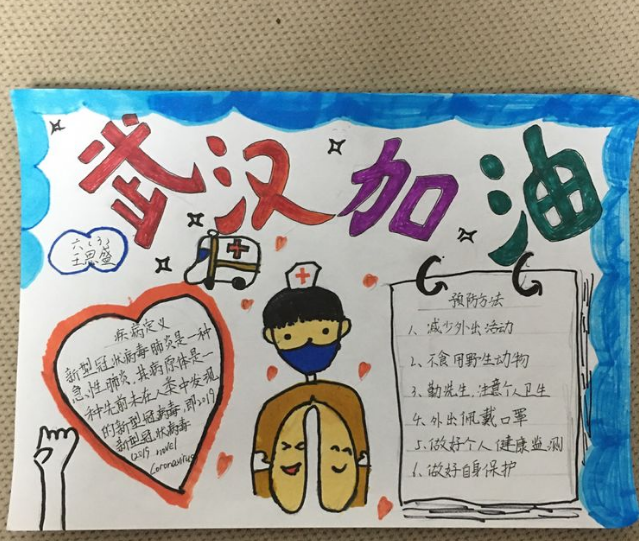 武汉加油
六(3)
王思盛
疾病定义
新型冠状病毒肺炎是一种
急性肺炎,其病原体是一
种先前未在人类中发现
的新型冠状病毒,即2019
新型冠状病毒
(2019 novel
Coronavirus
预防方法
1、减少外出活动
2、不食用野生动物
3、勤洗手,注意个人卫生
4、外出佩戴口罩
5、做好个人健康监测
6、做好自身保护